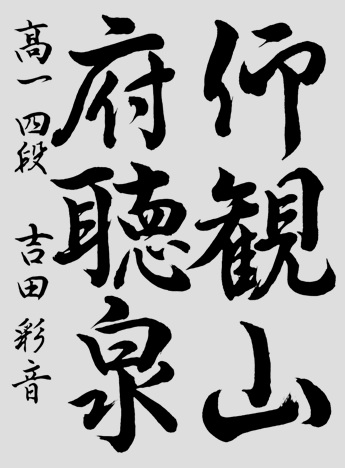 仰観山
府聴泉
高一 四段 吉田 彩音